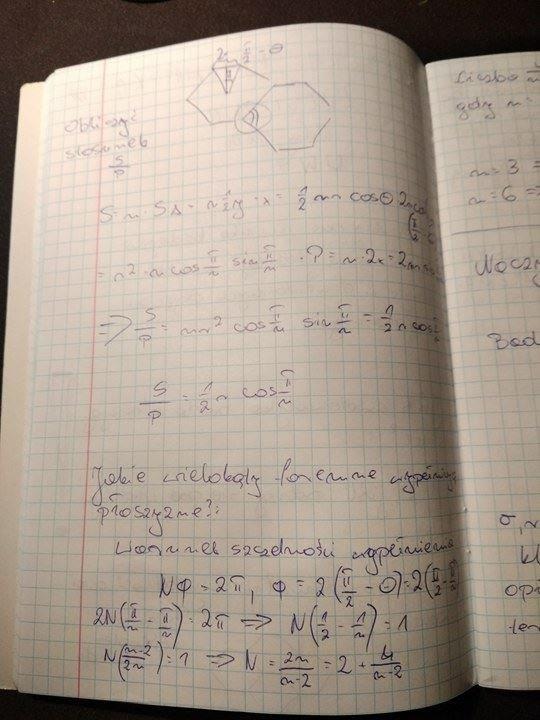 2x π/2 - Θ
Obliczyć
stosunek
S/P
S = n · S_Δ = n 1/2 y · x = 1/2 n r cosΘ 2r cos
(π/2
= r² · n cos π/n sin π/n · P = n · 2x = 2r n sin
=> S/P = n r² cos π/n sin π/n = 1/2 r cos
S/P = 1/2 r cos π/n
Jakie wielokąty foremne wypełniają
płaszyznę?:
Warunek szczelności wypełnienia
NΦ = 2π, Φ = 2(π/2 - Θ) = 2(π/2 - π/n
2N(π/n - π/n) = 2π => N(1/2 - 1/n) = 1
N(n-2/2n) = 1 => N = 2n/n-2 = 2 + 4/n-2
Liczba
gdy n =
n = 3 =
n = 6 =>
Bad